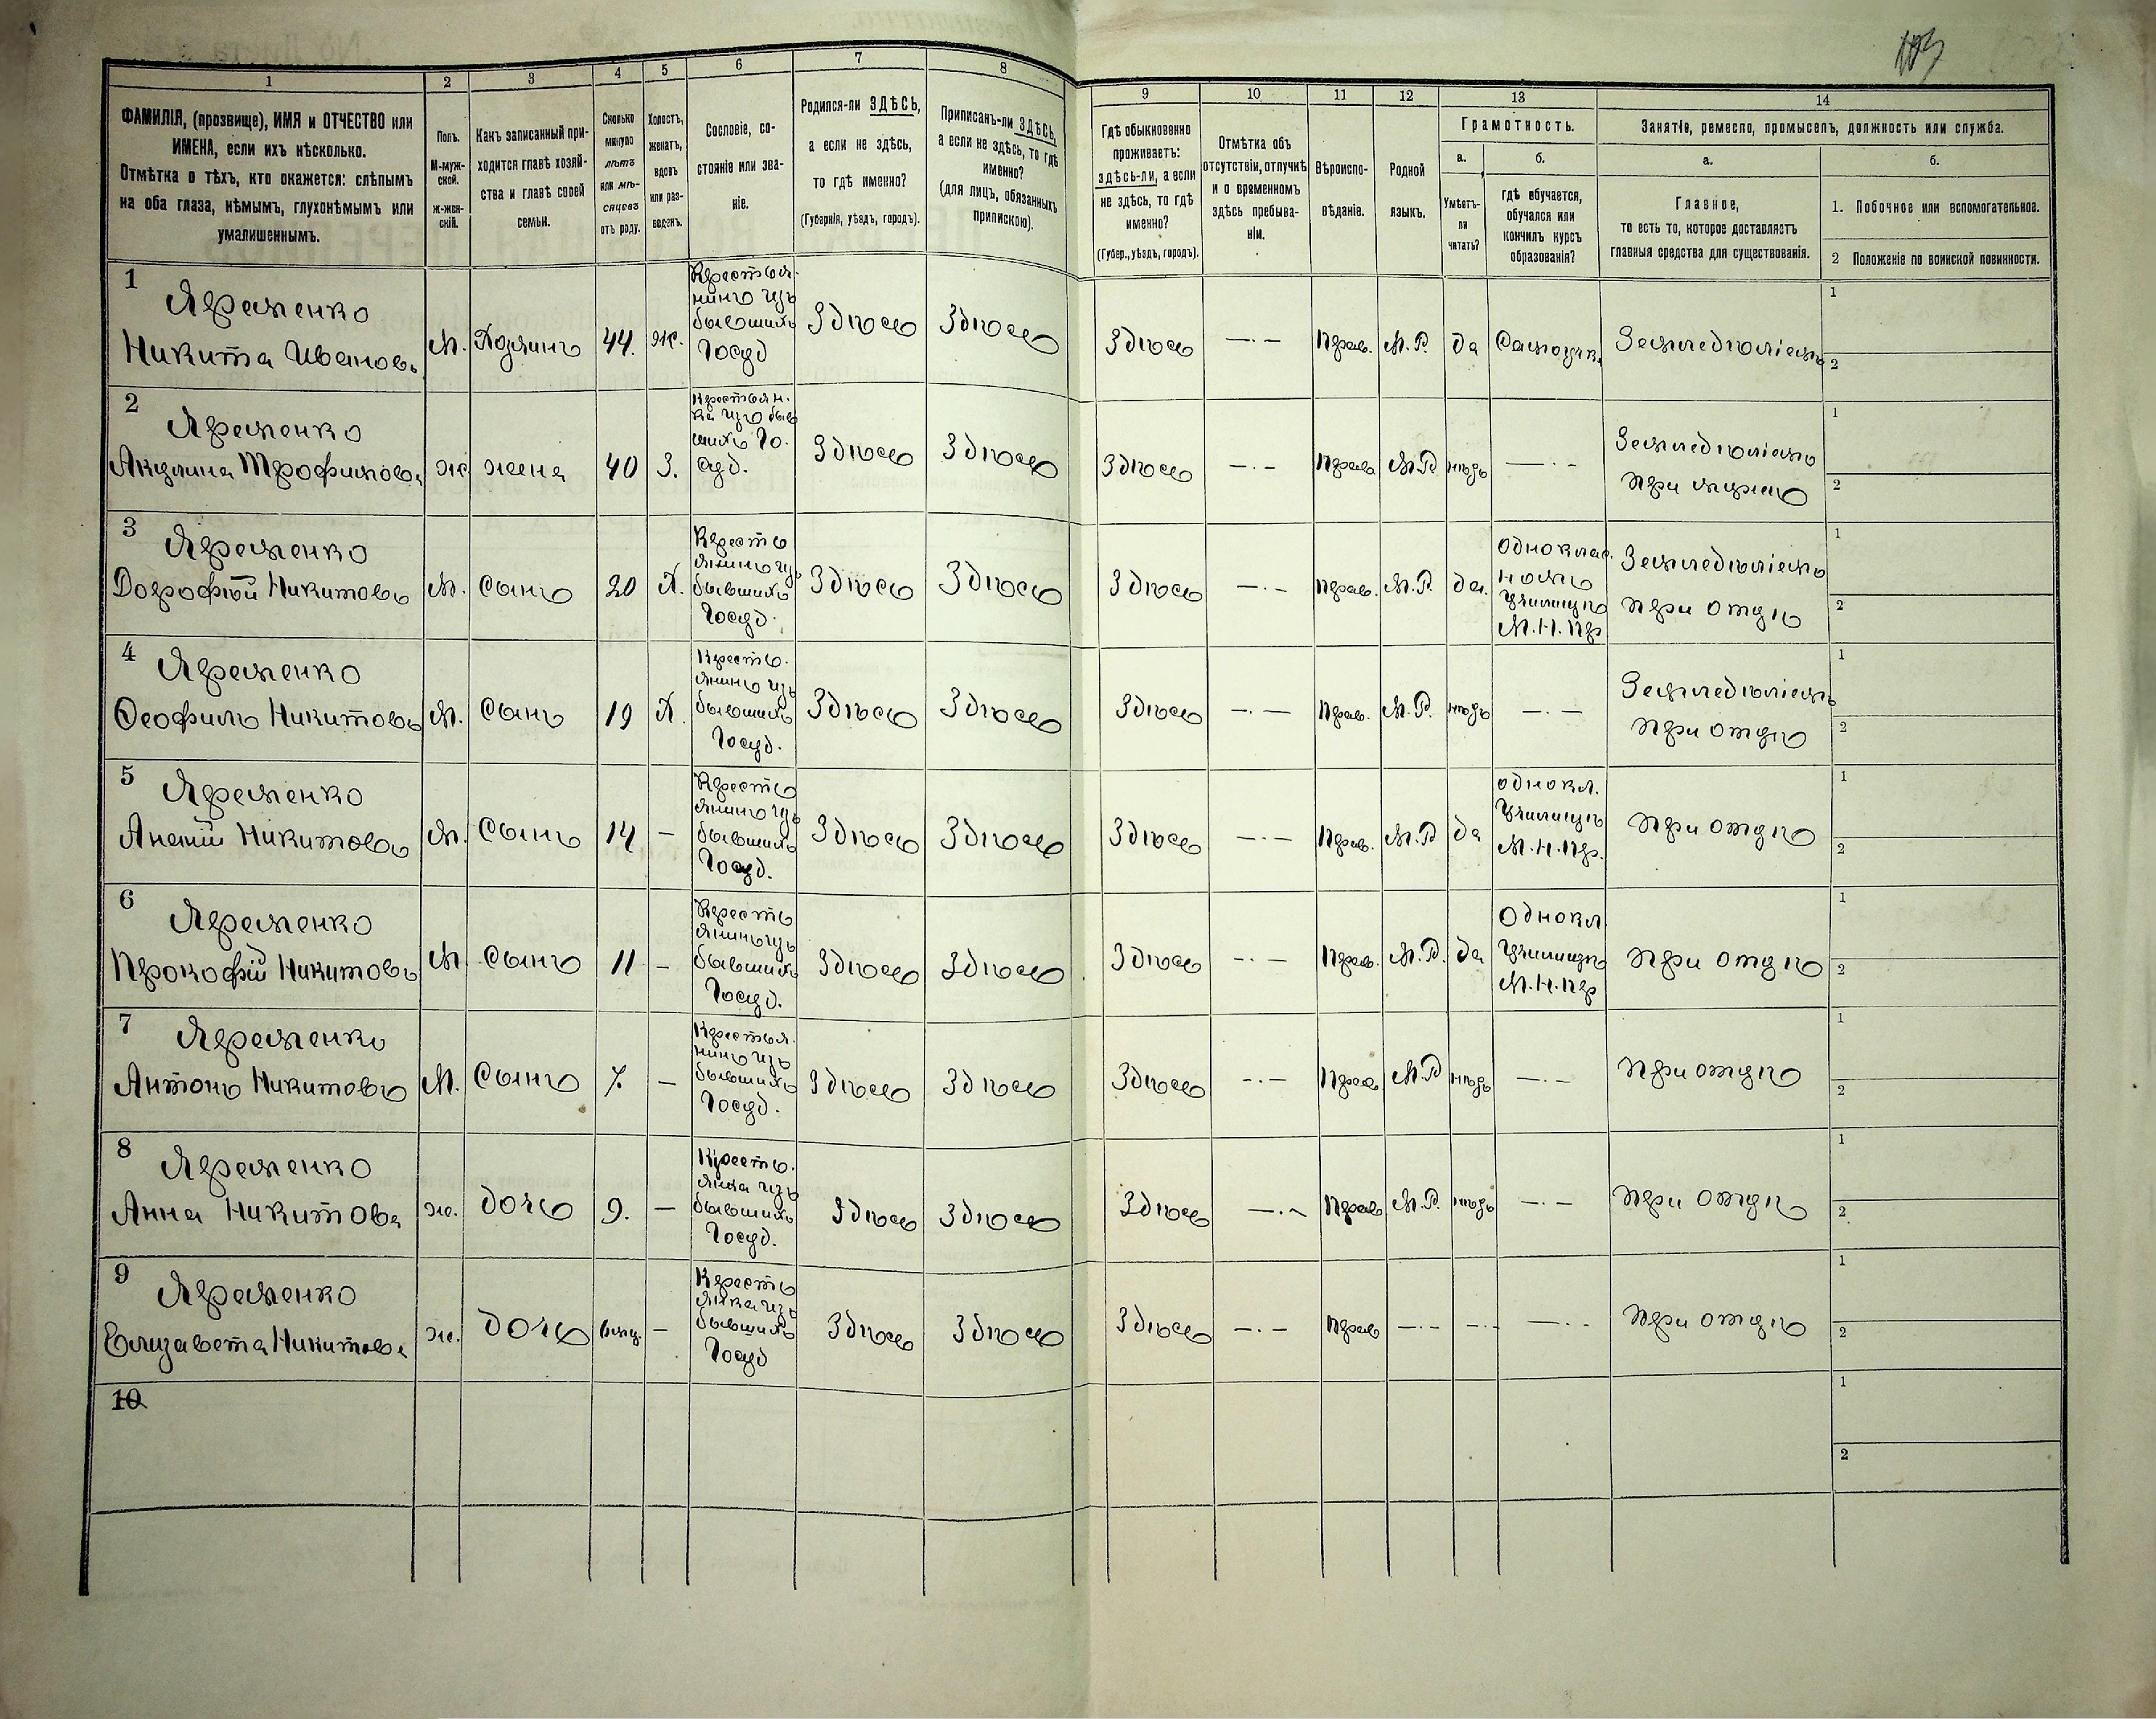 103
1 2 3 4 5 6 7 8 9 10 11 12 13 14
ФАМИЛІЯ, (прозвище), ИМЯ и ОТЧЕСТВО или
ИМЕНА, если ихъ нѣсколько.
Отмѣтка о тѣхъ, кто окажется: слѣпымъ
на оба глаза, нѣмымъ, глухонѣмымъ или
умалишеннымъ.
Полъ.
М-муж-
ской.
ж-жен-
скій.
Какъ записанный при-
ходится главѣ хозяй-
ства и главѣ своей
семьи.
Сколько
минуло
лѣтъ
или мѣ-
сяцевъ
отъ роду.
Холостъ,
женатъ,
вдовъ
или раз-
веденъ.
Сословіе, со-
стояніе или зва-
ніе.
Родился-ли ЗДѢСЬ,
а если не здѣсь,
то гдѣ именно?
(Губернія, уѣздъ, городъ).
Приписанъ-ли ЗДѢСЬ,
а если не здѣсь, то гдѣ
именно?
(для лицъ, обязанныхъ
припискою).
Гдѣ обыкновенно
проживаетъ:
здѣсь-ли, а если
не здѣсь, то гдѣ
именно?
(Губер., уѣздъ, городъ).
Отмѣтка объ
отсутствіи, отлучкѣ
и о временномъ
здѣсь пребыва-
ніи.
Вѣроиспо-
вѣданіе.
Родной
языкъ.
Грамотность.
а.
Умѣетъ-
ли
читать?
б.
гдѣ обучается,
обучался или
кончилъ курсъ
образованія?
Занятіе, ремесло, промыселъ, должность или служба.
а.
Главное,
то есть то, которое доставляетъ
главныя средства для существованія.
б.
1. Побочное или вспомогательное.
2 Положеніе по воинской повинности.
1
Яременко
Никита Ивановъ
М. Хозяинъ 44. ж.
Крестья-
нинъ изъ
бывшихъ
Госуд
Здѣсь Здѣсь Здѣсь —·— Прав. М.Р. да Самоучк. Земледѣліемъ
1
2
2
Яременко
Акулина Трофимова
ж жена 40 З.
Крестьян-
ка изъ быв
шихъ Го-
суд.
Здѣсь Здѣсь Здѣсь —·— Прав. М.Р. нѣтъ —·—
Земледѣліемъ
при мужѣ
1
2
3
Яременко
Дорофѣй Никитовъ
М. Сынъ 20 Х.
Кресть
янинъ изъ
бывшихъ
Госуд.
Здѣсь Здѣсь Здѣсь —·— Прав. М.Р. да.
одноклас.
номъ
Училищѣ
М.Н.Пр
Земледѣліемъ
при отцѣ
1
2
4
Яременко
Ѳеофилъ Никитовъ
М. Сынъ 19 Х.
Кресть-
янинъ изъ
бывшихъ
Госуд.
Здѣсь Здѣсь Здѣсь —·— Прав. М.Р. нѣтъ —·—
Земледѣліемъ
при отцѣ
1
2
5
Яременко
Ананій Никитовъ
М. Сынъ 14 —
Кресть
янинъ изъ
бывшихъ
Госуд.
Здѣсь Здѣсь Здѣсь —·— Прав. М.Р да
однокл.
Училищѣ
М.Н.Пр.
при отцѣ
1
2
6
Яременко
Прокофій Никитовъ
М Сынъ 11 —
Кресть
янинъ изъ
бывшихъ
Госуд.
Здѣсь Здѣсь Здѣсь —·— Прав. М.Р. да
Однокл
Училищѣ
М.Н.Пр
при отцѣ
1
2
7
Яременко
Антонъ Никитовъ
М. Сынъ 7. —
Крестья-
нинъ изъ
бывшихъ
Госуд.
Здѣсь Здѣсь Здѣсь —·— Прав М.Р нѣтъ —·— при отцѣ
1
2
8
Яременко
Анна Никитова
ж. дочь 9. —
Кресть-
янка изъ
бывшихъ
Госуд.
Здѣсь Здѣсь Здѣсь —·— Прав М.Р. нѣтъ —·— при отцѣ
1
2
9
Яременко
Елизавета Никитова
ж. дочь —
Кресть
янка изъ
бывшихъ
Госуд
Здѣсь Здѣсь Здѣсь —·— Прав —·— —·— —·— при отцѣ
1
2
10
1
2